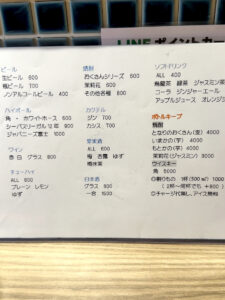 LINE ポイントカー
ビール
生ビール 600
瓶ビール 700
ノンアルコールビール 400
ハイボール
角 ・ ホワイトホース 600
シーバスリーガル12年 900
ジャパニーズ富士 1000
ワイン
赤 白 グラス 800
チューハイ
ALL 600
プレーン レモン
ゆず
焼酎
おくさんシリーズ 600
茉莉花 600
その他各種 800
カクテル
ジン 700
カシス 700
果実酒
ALL 600
梅 杏露 ゆず
日本酒
グラス 800
一合 1500
ソフトドリンク
ALL 400
烏龍茶 緑茶 ジャスミン茶
コーラ ジンジャーエール
アップルジュース オレンジ
ボトルキープ
焼酎
となりのおくさん(麦) 4000
いまかの(芋) 4000
もとかの(芋) 4000
茉莉花(ジャスミン) 8000
ウイスキー
角 5000
◎割りもの 1杯(500ml) 1000
(2杯〜何杯でも + 800)
◎チャージ代無し、アイス無料